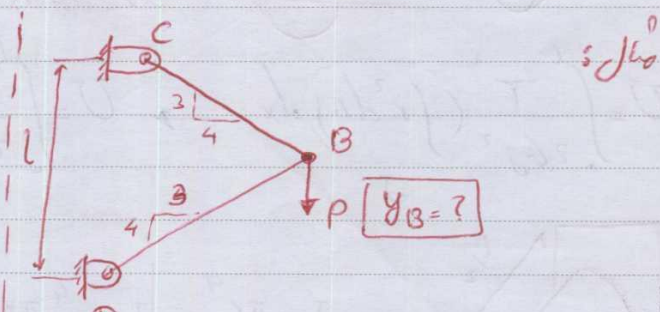 مثال :
C
3
4
B
l
3
4
P
y_B = ?